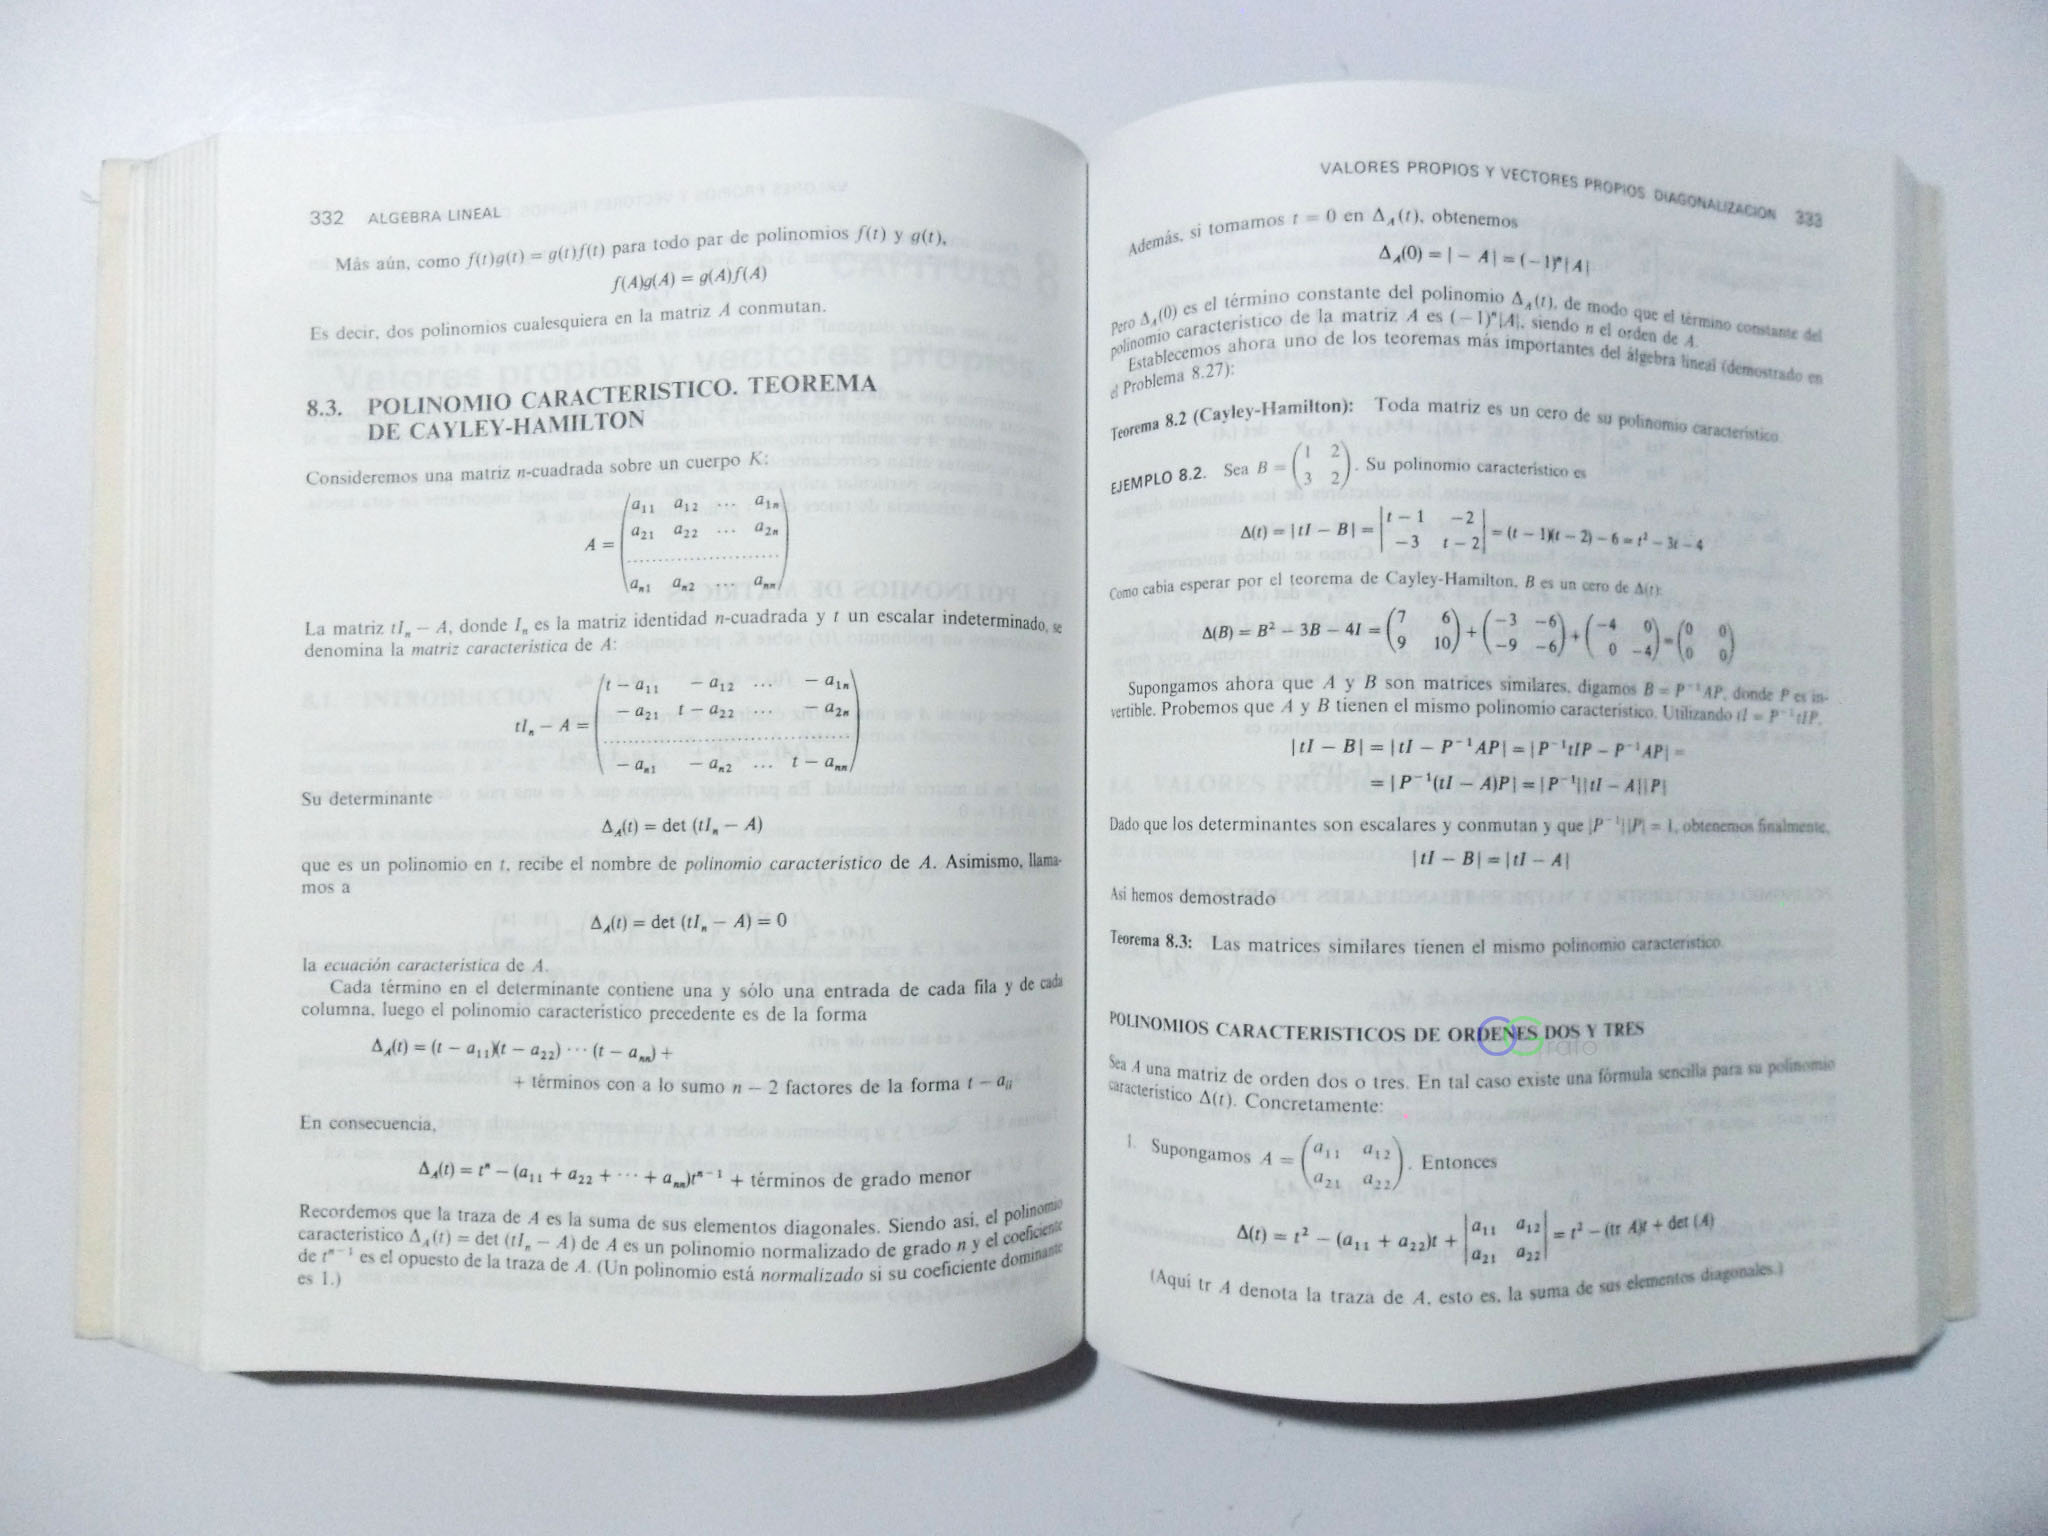 332 ALGEBRA LINEAL
Más aún, como f(t)g(t) = g(t)f(t) para todo par de polinomios f(t) y g(t),
f(A)g(A) = g(A)f(A)
Es decir, dos polinomios cualesquiera en la matriz A conmutan.
8.3. POLINOMIO CARACTERISTICO. TEOREMA
DE CAYLEY-HAMILTON
Consideremos una matriz n-cuadrada sobre un cuerpo K:
a₁₁ a₁₂ ... a₁ₙ
a₂₁ a₂₂ ... a₂ₙ
A = ..............................
aₙ₁ aₙ₂ ... aₙₙ
La matriz tIₙ − A, donde Iₙ es la matriz identidad n-cuadrada y t un escalar indeterminado, se
denomina la matriz característica de A:
t − a₁₁ − a₁₂ ... − a₁ₙ
− a₂₁ t − a₂₂ ... − a₂ₙ
tIₙ − A = ..............................
− aₙ₁ − aₙ₂ ... t − aₙₙ
Su determinante
Δ_A(t) = det (tIₙ − A)
que es un polinomio en t, recibe el nombre de polinomio característico de A. Asimismo, llama-
mos a
Δ_A(t) = det (tIₙ − A) = 0
la ecuación característica de A.
Cada término en el determinante contiene una y sólo una entrada de cada fila y de cada
columna, luego el polinomio característico precedente es de la forma
Δ_A(t) = (t − a₁₁)(t − a₂₂) ··· (t − aₙₙ) +
+ términos con a lo sumo n − 2 factores de la forma t − aᵢᵢ
En consecuencia,
Δ_A(t) = tⁿ − (a₁₁ + a₂₂ + ··· + aₙₙ)tⁿ⁻¹ + términos de grado menor
Recordemos que la traza de A es la suma de sus elementos diagonales. Siendo así, el polinomio
característico Δ_A(t) = det (tIₙ − A) de A es un polinomio normalizado de grado n y el coeficiente
de tⁿ⁻¹ es el opuesto de la traza de A. (Un polinomio está normalizado si su coeficiente dominante
es 1.)
VALORES PROPIOS Y VECTORES PROPIOS. DIAGONALIZACION 333
Además, si tomamos t = 0 en Δ_A(t), obtenemos
Δ_A(0) = | − A| = (−1)ⁿ|A|
Pero Δ_A(0) es el término constante del polinomio Δ_A(t), de modo que el término constante del
polinomio característico de la matriz A es (−1)ⁿ|A|, siendo n el orden de A.
Establecemos ahora uno de los teoremas más importantes del álgebra lineal (demostrado en
el Problema 8.27):
Teorema 8.2 (Cayley-Hamilton): Toda matriz es un cero de su polinomio característico.
EJEMPLO 8.2. Sea B = (1 2
3 2). Su polinomio característico es
Δ(t) = |tI − B| = |t − 1 −2
−3 t − 2| = (t − 1)(t − 2) − 6 = t² − 3t − 4
Como cabía esperar por el teorema de Cayley-Hamilton, B es un cero de Δ(t):
Δ(B) = B² − 3B − 4I = (7 6
9 10) + (−3 −6
−9 −6) + (−4 0
0 −4) = (0 0
0 0)
Supongamos ahora que A y B son matrices similares, digamos B = P⁻¹AP, donde P es in-
vertible. Probemos que A y B tienen el mismo polinomio característico. Utilizando tI = P⁻¹tIP,
|tI − B| = |tI − P⁻¹AP| = |P⁻¹tIP − P⁻¹AP| =
= |P⁻¹(tI − A)P| = |P⁻¹||tI − A||P|
Dado que los determinantes son escalares y conmutan y que |P⁻¹||P| = 1, obtenemos finalmente,
|tI − B| = |tI − A|
Así hemos demostrado
Teorema 8.3: Las matrices similares tienen el mismo polinomio característico.
POLINOMIOS CARACTERISTICOS DE ORDENES DOS Y TRES
Sea A una matriz de orden dos o tres. En tal caso existe una fórmula sencilla para su polinomio
característico Δ(t). Concretamente:
1. Supongamos A = (a₁₁ a₁₂
a₂₁ a₂₂). Entonces
Δ(t) = t² − (a₁₁ + a₂₂)t + |a₁₁ a₁₂
a₂₁ a₂₂| = t² − (tr A)t + det (A)
(Aquí tr A denota la traza de A, esto es, la suma de sus elementos diagonales.)